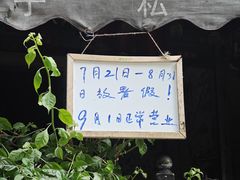 松
7月21日－8月31
日放暑假!
9月1日正常营业